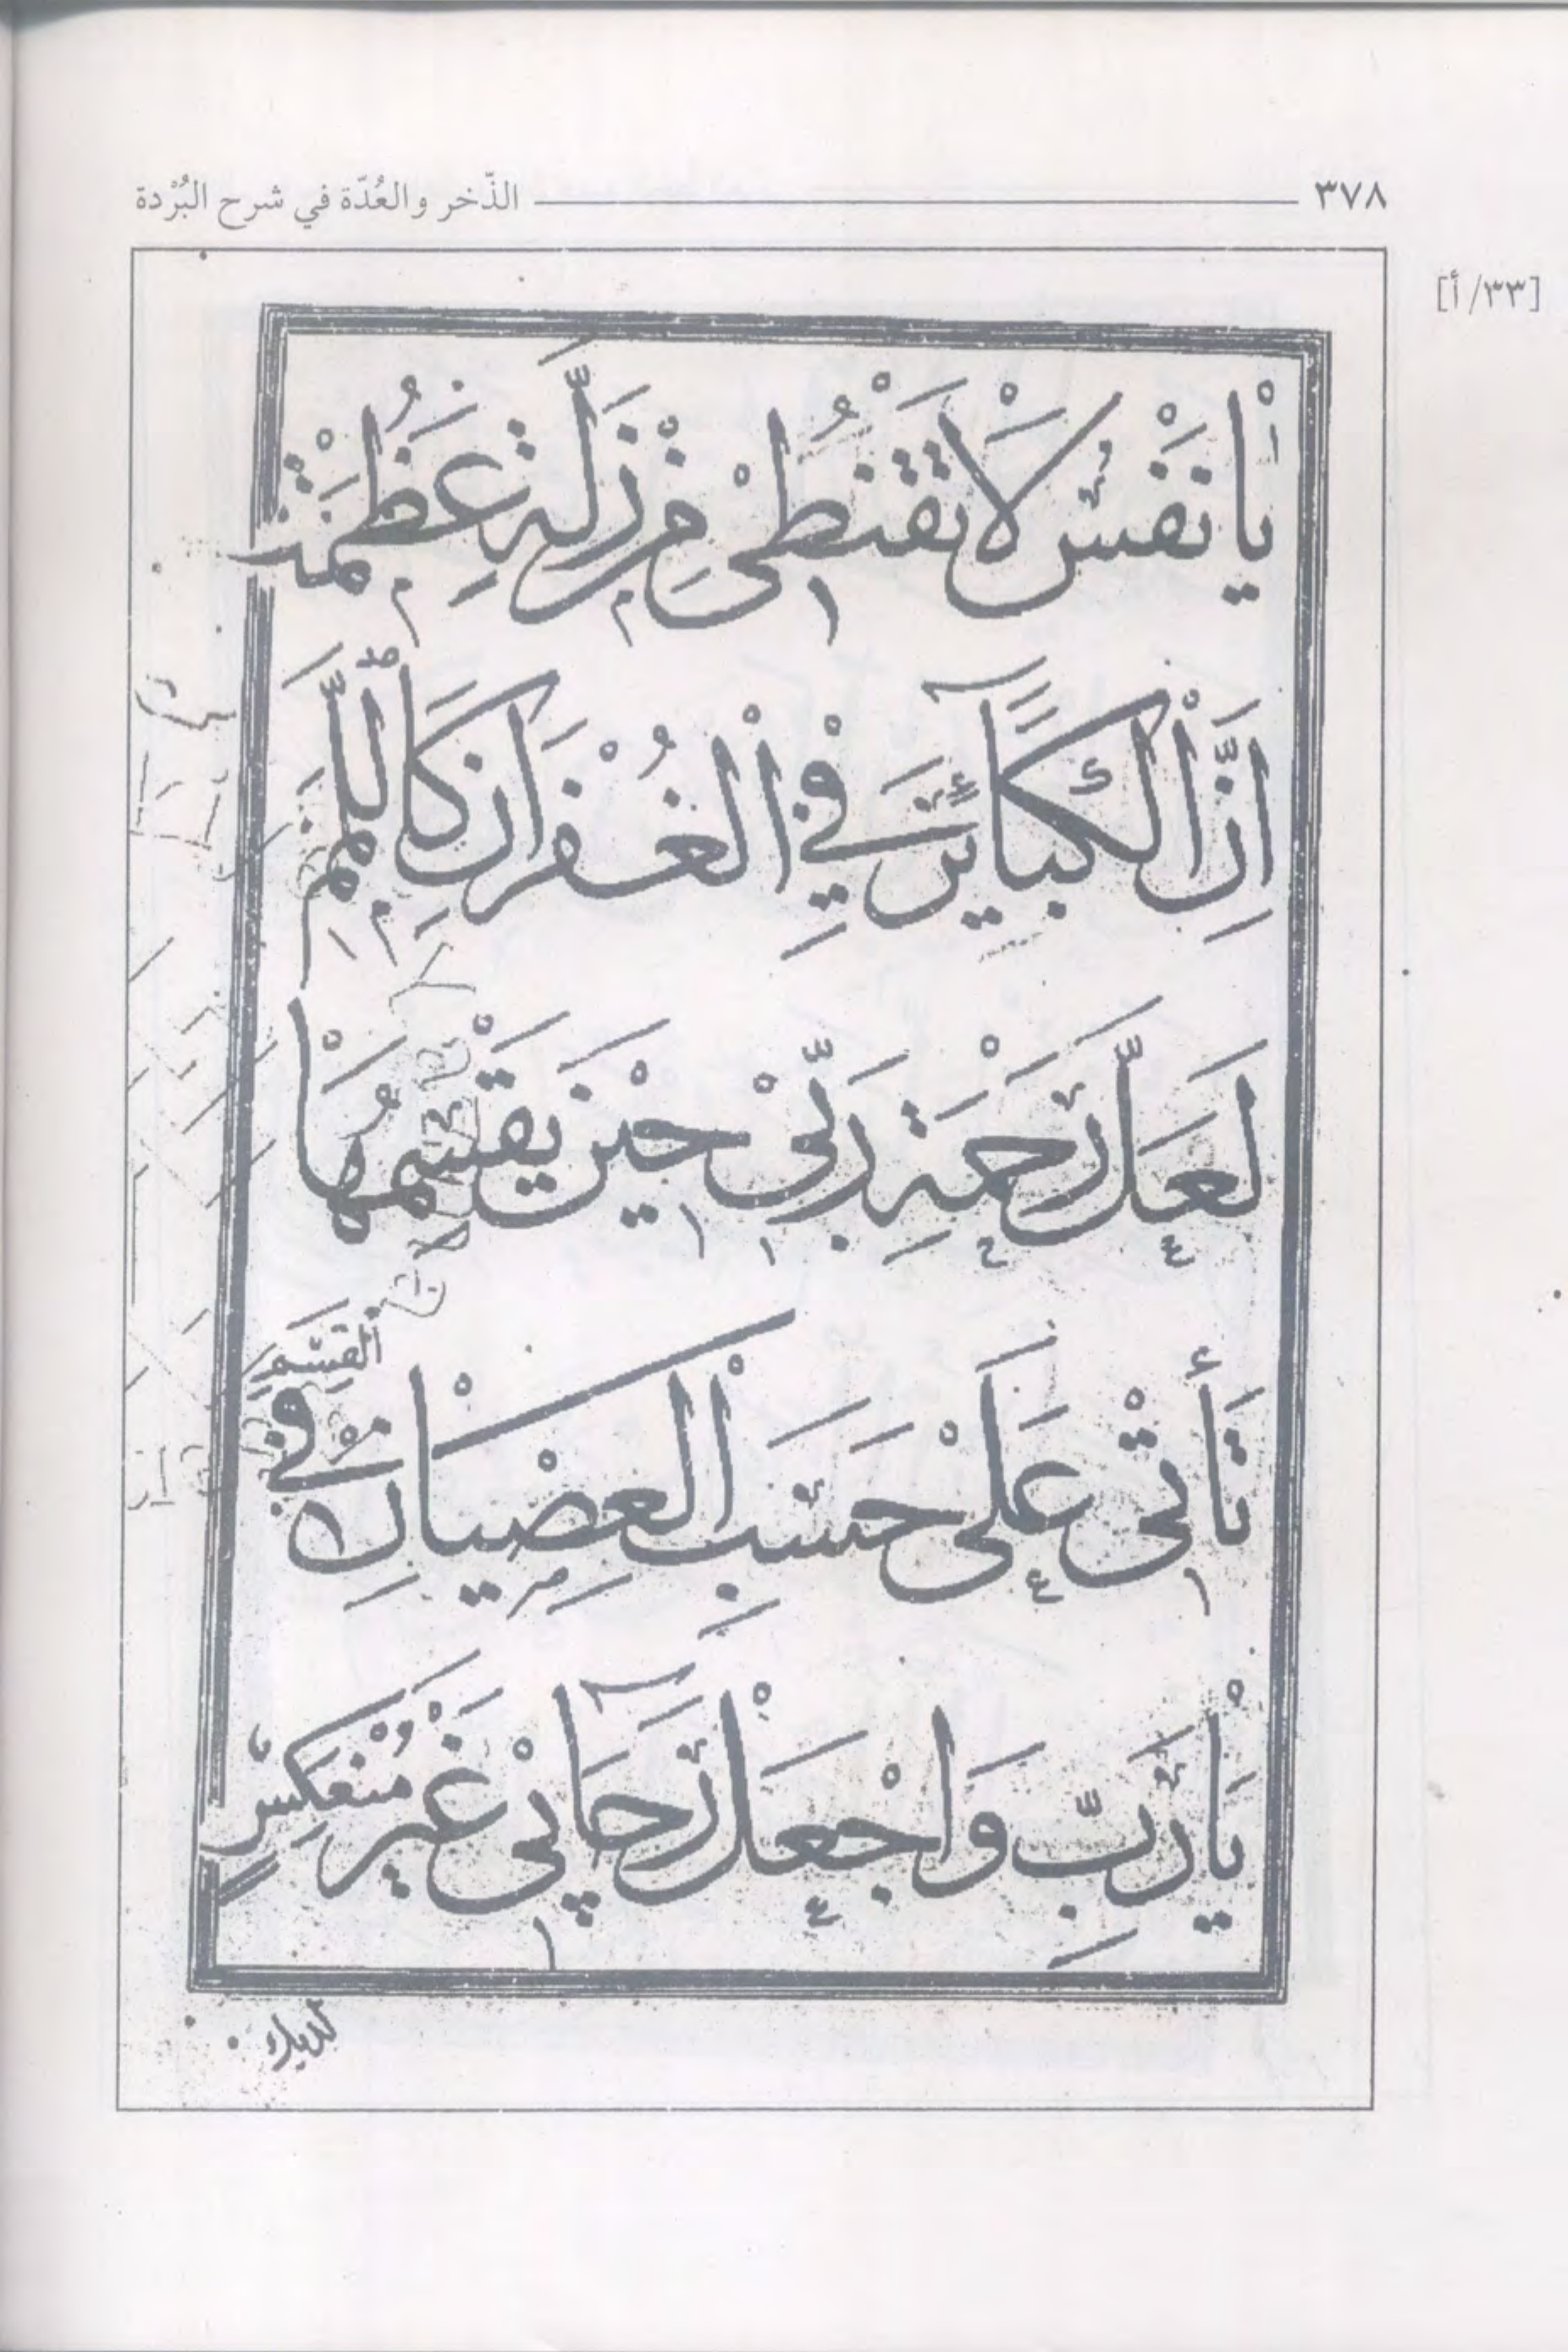 ٣٧٨ الذّخر والعُدّة في شرح البُرْدة
[٣٣/ أ]
يَا نَفْسُ لَا تَقْنُطِيْ مِنْ زَلَّةٍ عَظُمَتْ
اِنَّ الْكَبَآئِرَ فِي الْغُفْرَانِ كَاللَّمَمِ
لَعَلَّ رَحْمَةَ رَبِّيْ حِيْنَ يَقْسِمُهَا
تَأْتِيْ عَلَىْ حَسَبِ الْعِصْيَانِ فِي
الْقِسَمِ
يَا رَبِّ وَاجْعَلْ رَجَآئِيْ غَيْرَ مُنْعَكِسٍ
لديك